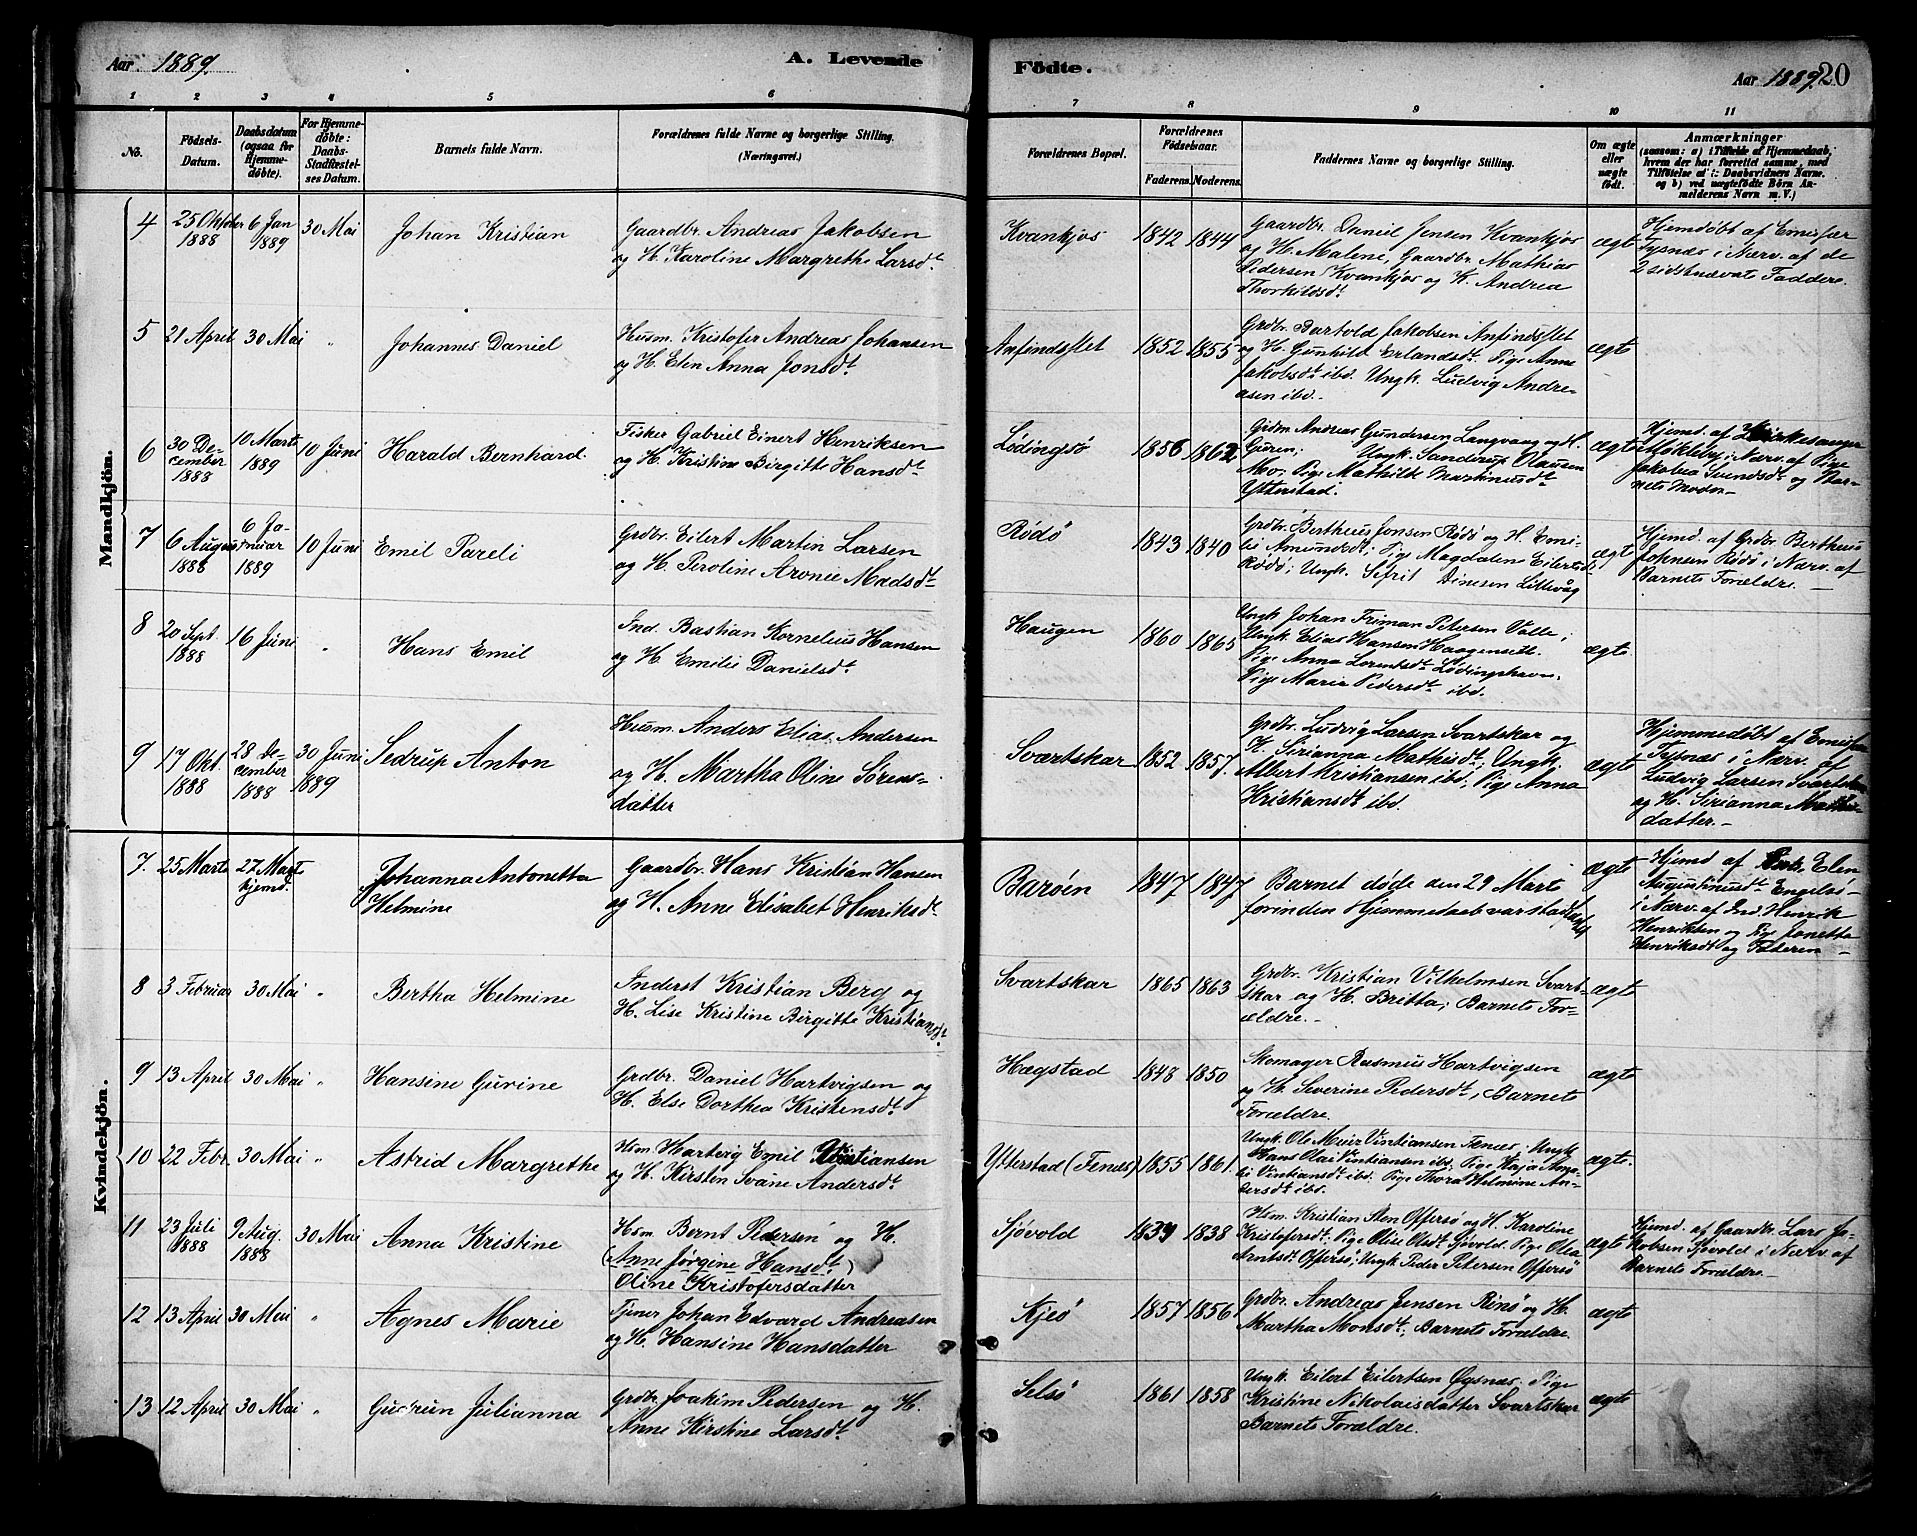 Aar 1889.
A. Levende
Födte.
Aar 1889. 20
1 2 3 4 5 6 7 8 9 10 11
No.
Födsels-
Datum.
Daabsdatum
(ogsaa for
Hjemme-
døbte).
For Hjemme-
døbte:
Daabs-
Stadfæstel-
ses Datum.
Barnets fulde Navn.
Forældrenes fulde Navne og borgerlige Stilling.
(Næringsvei.)
Forældrenes Bopæl.
Forældrenes
Fødselsaar.
Faderens. Moderens.
Faddernes Navne og borgerlige Stilling.
Om ægte
eller
uægte
født.
Anmærkninger
(saasom: a) i Tilfælde af Hjemmedaab,
hvem der har forrettet samme, med
Tilføielse af i: Daabsvidners Navne.
og b) ved uægtefødte Börn An-
melderens Navn m.V.)
Mandkjön.
4
25 Oktober
1888
6 Jan
1889
30 Mai
Johan Kristian
Gaardbr. Andreas Jakobsen
og H. Karoline Margrethe Larsdt.
Kvankjos
1842 1844
Gaardbr. Daniel Jensen Kvankjos
og H. Malene, Gaardbr. Mathias
Pedersen Kvankjos og K. Andrea
Thorkildsdt
ægte
Hjemdøbt af Emisær
Tysnæs i Nærv. af de
2 sidstnævnte Faddere.
5
21 April
30 Mai
"
Johannes Daniel
Husm. Kristofer Andreas Johansen
og H. Elen Anna Jonsdt.
Anfindslet
1852 1855
Grdbr. Bartold Jakobsen Anfindslet
og H. Gunhild Erlandsdt. Pige Anne
Jakobsdt ibd. Ungk. Ludvig Andre-
asen ibd.
ægte
6
30 De-
cember
1888
10 Marts
1889
10 Juni
Harald Bernhard
Fisker Gabriel Einert Henriksen
og H. Kristine Birgitte Hansdt.
Lödingsö
1856 1862
Grdm Andreas Gundersen Langvaag og H.
Guren; Ungk. Sanderup Olausen
Mo; Pige Mathilde Martinusdt
Ytterstad.
ægte
Hjemd. af Kirkesanger
Mökleby i Nærv. af Pige
Jakobea Svendsdt og Bar-
nets Moder.
7
6 August
1888
6 Ja-
nuar
1889
10 Juni
Emil Pareli
Grdbr. Eilert Martin Larsen
og H. Peroline Aronie Madsdt.
Rödö
1843 1840
Grdbr. Bertheus Jonsen Rödö og H. Emi-
lie Amundsdt; Pige Magdalene Eilertsdt
Rödö; Ungk. Sifrit Dinesen Littevåg
ægte
Hjemd. af Grdbr Bertheus
Johnsen Rödö i Nærv. af
Barnets Forældre.
8
20 Sept.
1888
16 Juni
"
Hans Emil
Ind. Bastian Kornelius Hansen
og H. Emilie Danielsdt.
Haugen
1860 1865
Ungk. Johan Friman Petersen Valle;
Ungk. Elias Hansen Haagensett.
Pige Anna Lorentsdt Lödingshavn.
Pige Marie Pedersdt ibd.
ægte
9
17 Okt.
1888
28 De-
cember
1888
30 Juni
1889
Sedrup Anton
Husm. Anders Elias Andersen
og H. Martha Oline Sörens-
datter
Svartskar
1852 1857.
Grdbr. Ludvig Larsen Svartskar og
H. Sirianna Mathisdt; Ungk.
Albert Kristiansen ibd; Pige Anna
Kristiansdt ibd.
ægte
Hjemmedöbt af Emisær
Tysnæs i Nærv. af
Ludvig Larsen Svartskar
og H. Sirianna Mathis-
datter.
Kvindekjön.
7.
25 Marts
27 Marts
hjemd.
Johanna Antonetta
Helmine
Gaardbr. Hans Kristian Hansen
og H. Anne Elisabet Henriksdt.
Baröen
1847 1847
Barnet döde den 29 Marts
forinden Hjemmedaab var stadfæstet
ægte
Hjemd af Enke Elen
Augustinusdt Engelö
i Nærv. af Ind. Henrik
Henriksen og Pige Jonetta
Henriksdt og Faderen
8
3 Februar
30 Mai
"
Bertha Helmine
Inderst Kristian Berg og
H. Lise Kristine Birgitte Kristiansdt.
Svartskar
1865 1863
Grdbr. Kristian Vilhelmsen Svart-
skar og H. Britta; Barnets For-
ældre.
ægte
9
13 April
30 Mai
"
Hansine Gurine
Grdbr. Daniel Hartvigsen og
H. Else Dorthea Kristensdt.
Hægstad
1848 1850
Skomager Rasmus Hartvigsen
og H. Severine Pedersdt; Barnets
Forældre.
ægte
10
22 Febr.
30 Mai
"
Astrid Margrethe
Hsm. Hartvig Emil Vintiansen
og H. Kirsten Svane Andersdt.
Ytterstad (Fenæs)
1855 1861.
Ungk. Ole Meier Vintiansen Fenæs; Ungk
Hans Olai Vintiansen ibd; Pige Kaja Ama-
lie Vintiansdt ibd. Pige Thora Helmine An-
dersdt ibd.
ægte.
11
23 Juli
1888
9 Aug.
1888
30 Mai
Anna Kristine
Hsm. Bernt Pedersen og H.
(Anne Jörgine Hansdt.)
Oline Kristofersdatter
Sjövold
1834 1838
Hsm. Kristian Sten Offersö og H. Karoline
Kristofersdt. Pige Oline Olsdt Sjövold. Pige Olea
Arntsdt. Offersö; Ungk Peder Petersen Offersö
ægte
Hjemd. af Gaardbr. Lars Ja-
kobsen Sjövold i Nærv. af
Barnets Forældre.
12
13 April
30 Mai
"
Agnes Marie
Tjener Johan Edvard Andreasen
og H. Hansine Hansdatter
Kjeö
1857 1856
Grdbr. Andreas Jensen Rinö og H.
Martha Monsdt; Barnets Forældre.
ægte
13
12 April
30 Mai
"
Gudrun Julianna
Grdbr. Joakim Pedersen og H.
Anne Kirstine Larsdt.
Selsö
1861 1858
Ungk. Eilert Eilertsen Öysnæs; Pige
Kristine Nikolaisdatter Svartskar
Barnets Forældre.
ægte